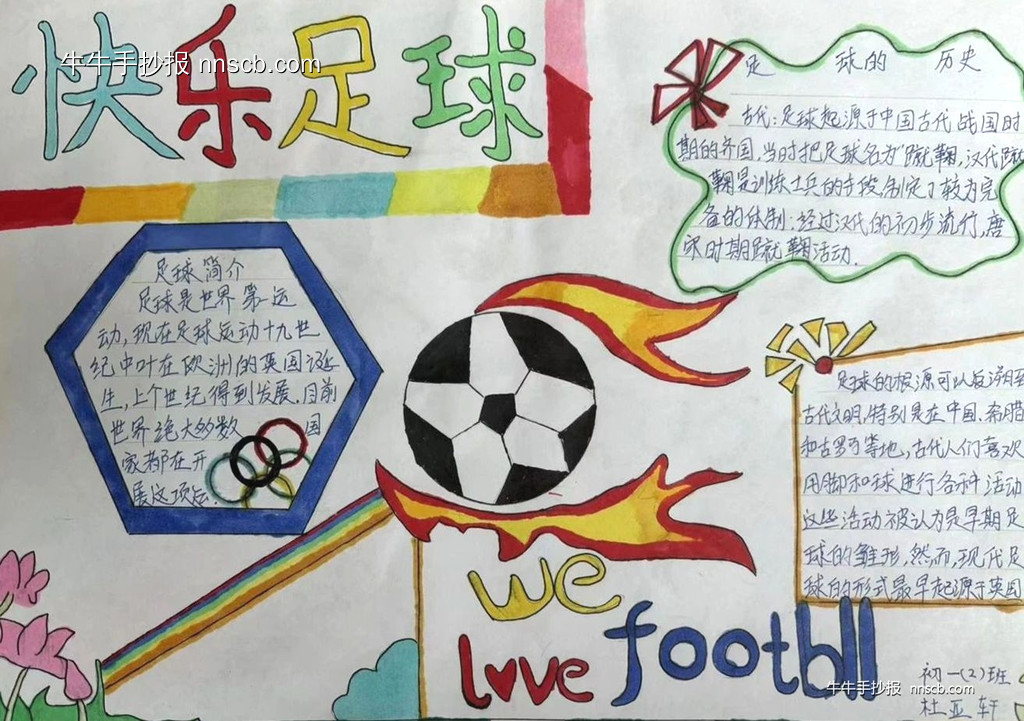 快乐足球
牛牛手抄报 nnscb.com
足球的历史
古代:足球起源于中国古代战国时
期的齐国,当时把足球名为"蹴鞠,汉代蹴
鞠是训练士兵的手段,制定了较为完
备的体制.经过汉代的初步流行,唐
宋时期蹴鞠活动.
足球简介
足球是世界第一运
动,现在足球运动十九世
纪中叶在欧洲的英国诞
生,上个世纪得到发展.目前
世界绝大多数国
家都在开
展这项运.
足球的根源可以追溯至
古代文明,特别是在中国.希腊
和古罗马等地,古代人们喜欢
用脚和球进行各种活动
这些活动被认为是早期足
球的雏形,然而,现代足
球的形式最早起源于英国
we
love footbll
初一(2)班
牛牛手抄报 nnscb.com
杜亚轩